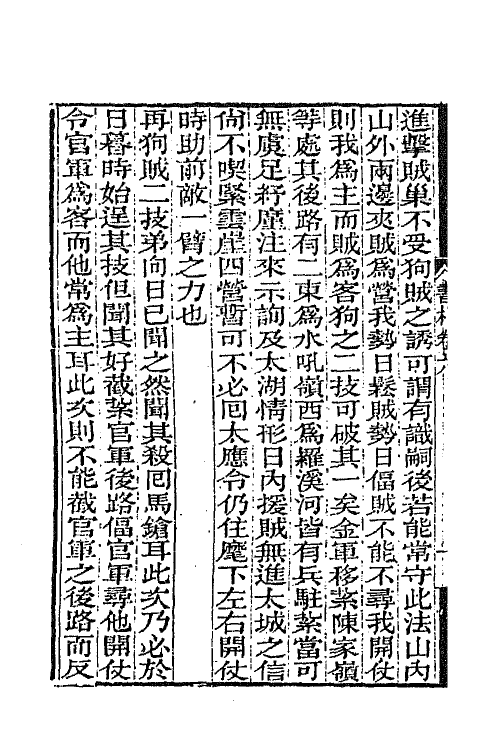 進擊賊巢不受狗賊之誘可謂有識嗣後若能常守此法山內
山外兩邊夾賊爲營我勢日鬆賊勢日偪賊不能不尋我開仗
則我爲主而賊爲客狗之二技可破其一矣金軍移紮陳家嶺
等處其後路有二東爲水吼嶺西爲羅溪河皆有兵駐紮當可
無虞足紓廑注來示詢及太湖情形日內援賊無進太城之信
尙不喫緊雲崖四營暫可不必囘太應令仍住麾下左右開仗
時助前敵一臂之力也
再狗賊二技弟向日已聞之然聞其殺囘馬鎗耳此次乃必於
日暮時始逞其技但聞其好截紮官軍後路偪官軍尋他開仗
令官軍爲客而他常爲主耳此次則不能截官軍之後路而反
書札卷六